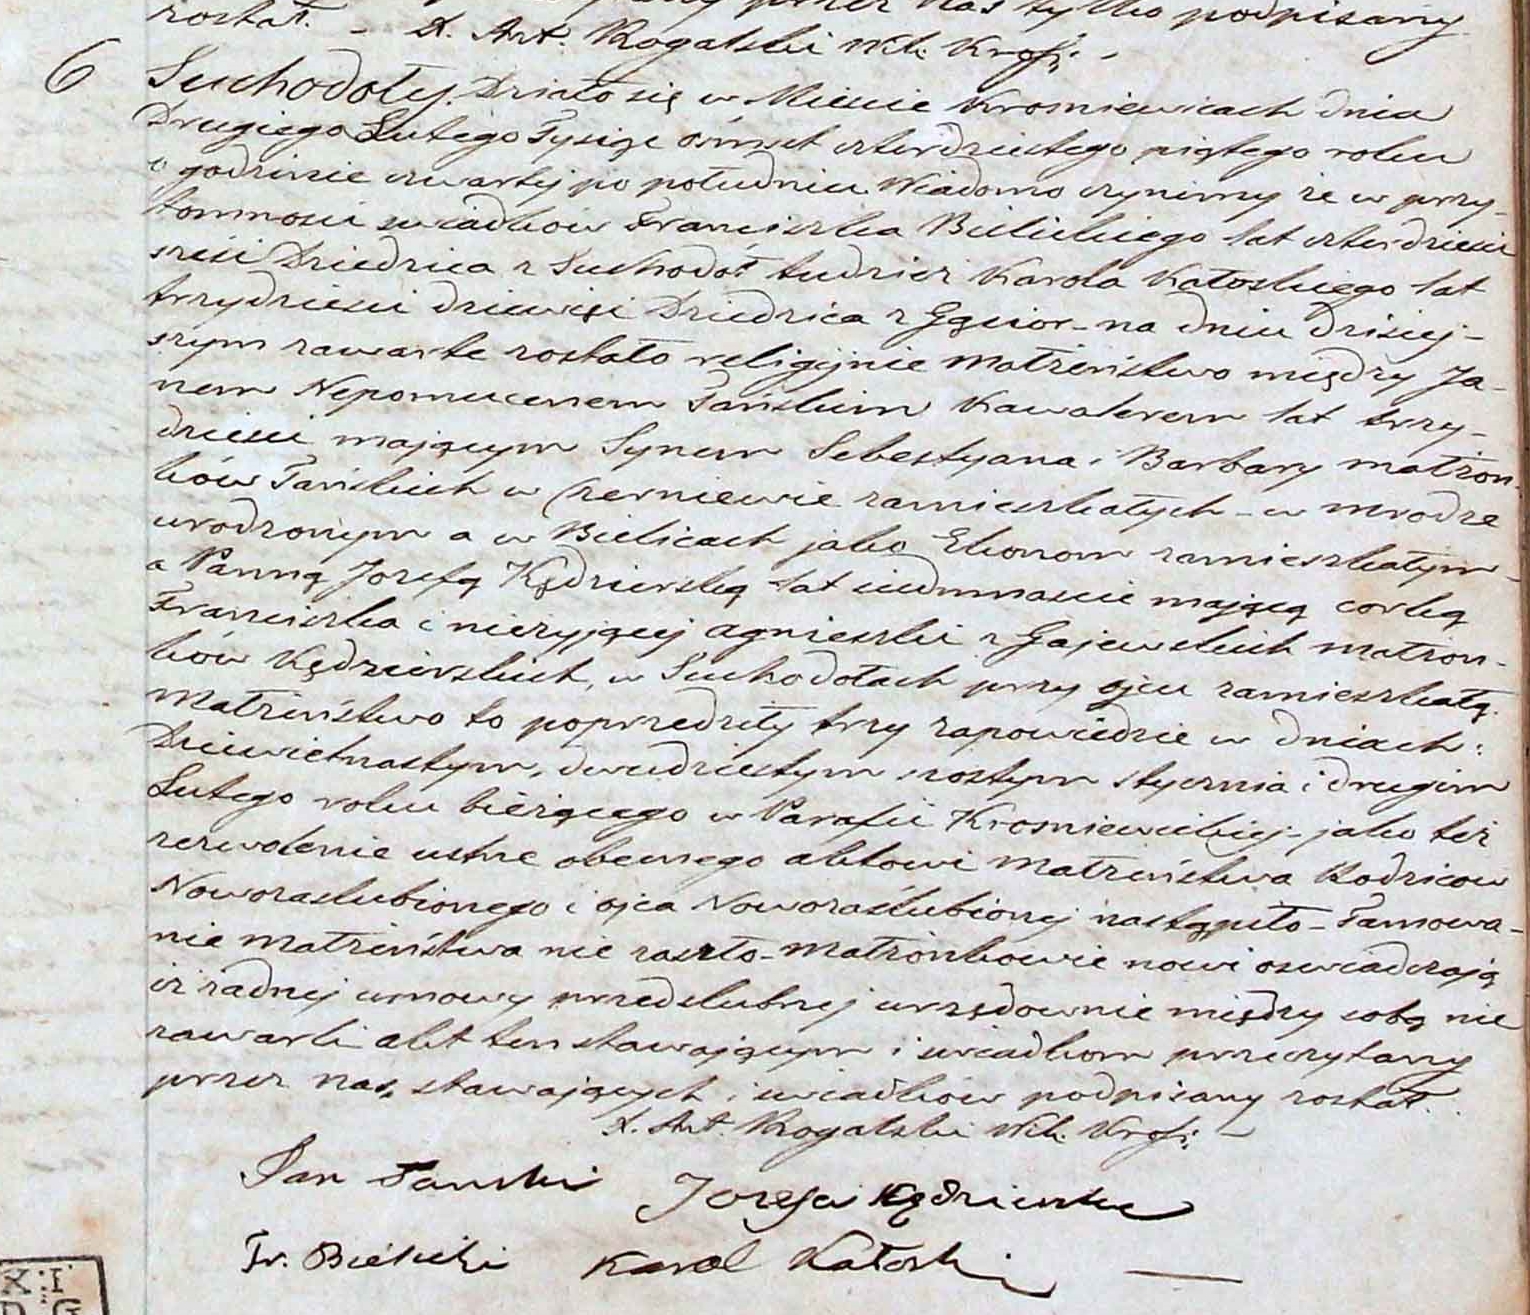 przez nas tylko podpisany
został. - X. Ant. Rogalski Wik. Kroś: -
6
Suchodoły. Działo się w Mieście Krośniewicach dnia
Drugiego Lutego Tysiąc ośmset czterdziestego piątego roku
o godzinie czwartej po południu. Wiadomo czynimy że w przy-
tomności swiadków Franciszka Bielickiego lat czterdzieści
sześć Dziedzica z Suchodoł tudzież Karola Kałoskiego lat
trzydzieści dziewięć Dziedzica z Gąsior - na dniu dzisiej-
szym zawarte zostało religijnie Małżeństwo między Ja-
nem Nepomucenem Tańskim Kawalerem lat trzy-
dzieści mającym Synem Sebestyana i Barbary małżon-
ków Tańskich w Czerniewie zamieszkałych - w Mrodze
urodzonym a w Bielicach jako Ekonom zamieszkałym -
a Panną Jozefą Kędzierską lat siedmnaście mającą corką
Franciszka i nieżyjącej Agnieszki z Gajewskich małżon-
ków Kędzierskich, w Suchodołach przy ojcu zamieszkałą.
Małżeństwo to poprzedziły trzy zapowiedzie w dniach:
Dziewietnastym, dwudziestym szostym stycznia i drugim
Lutego roku bieżącego w Parafii Krosniewickiej - jako też
zezwolenie ustne obecnego aktowi Małżeństwa Rodzicow
Nowozaslubionego i ojca Nowozaślubionej nastąpiło - Tamowa-
nie małżeństwa nie zaszło - Małżonkowie nowi oswiadczają
iż żadnej umowy przedslubnej urzędownie między sobą nie
zawarli akt ten stawającym i swiadkom przeczytany
przez nas, stawających i swiadków podpisany został.
X. Ant. Rogalski Wik. Kroś: -
Jan Tański Jozefa Kędzierska
Fr. Bielicki Karol Kałoski